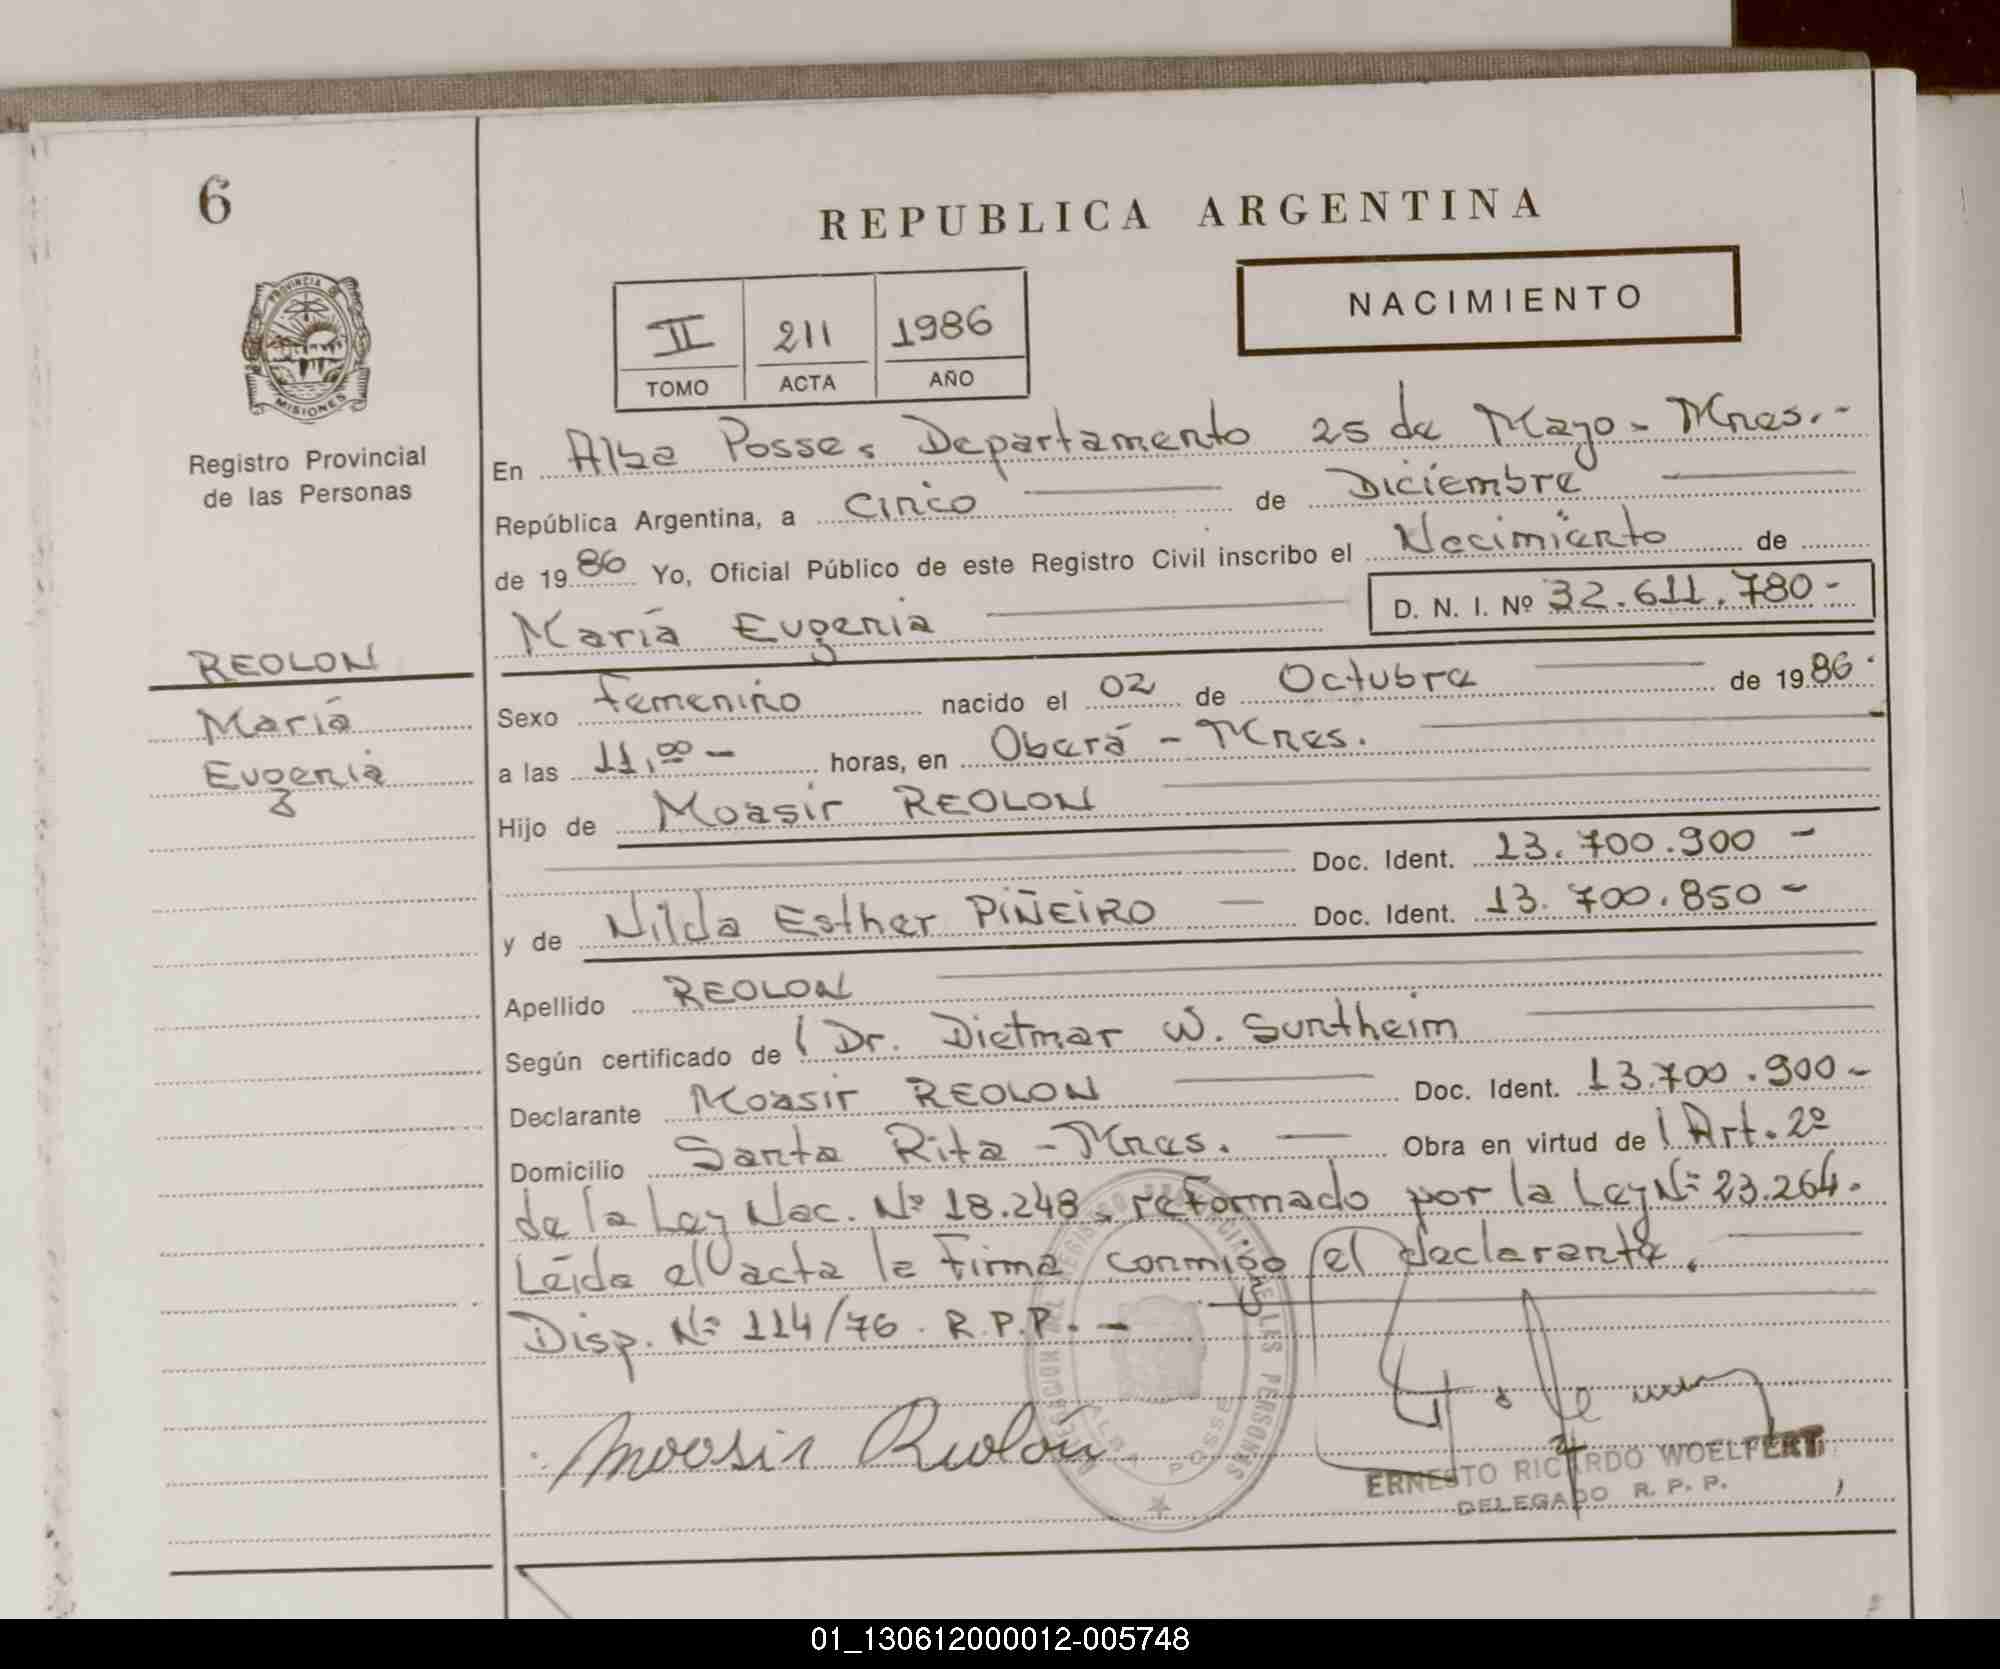 6
REPUBLICA ARGENTINA
PROVINCIA DE
MISIONES
Registro Provincial
de las Personas
II 211 1986
TOMO ACTA AÑO
NACIMIENTO
En Alba Posse, Departamento 25 de Mayo - Mnes.-
República Argentina, a cinco de Diciembre
de 1986 Yo, Oficial Público de este Registro Civil inscribo el Nacimiento de
María Eugenia D. N. I. Nº 32.611.780-
REOLON
María
Eugenia
Sexo femenino nacido el 02 de Octubre de 1986.
a las 11,00- horas, en Oberá - Mnes.
Hijo de Moasir REOLON
Doc. Ident. 13.700.900 -
y de Nilda Esther PIÑEIRO - Doc. Ident. 13.700.850 -
Apellido REOLON
Según certificado de l Dr. Dietmar W. Suntheim
Declarante Moasir REOLON Doc. Ident. 13.700.900-
Domicilio Santa Rita - Mnes. - Obra en virtud de l Art. 2º
de la Ley Nac. Nº 18.248, reformado por la Ley Nº 23.264.
Leída el acta la firma conmigo el declarante.
Disp. Nº 114/76. R.P.P.-
Moosir Reolón
DELEGACION DEL REGISTRO PROVINCIAL DE LAS PERSONAS
ALBA POSSE
ERNESTO RICARDO WOELFERT
DELEGADO R. P. P.
01_130612000012-005748